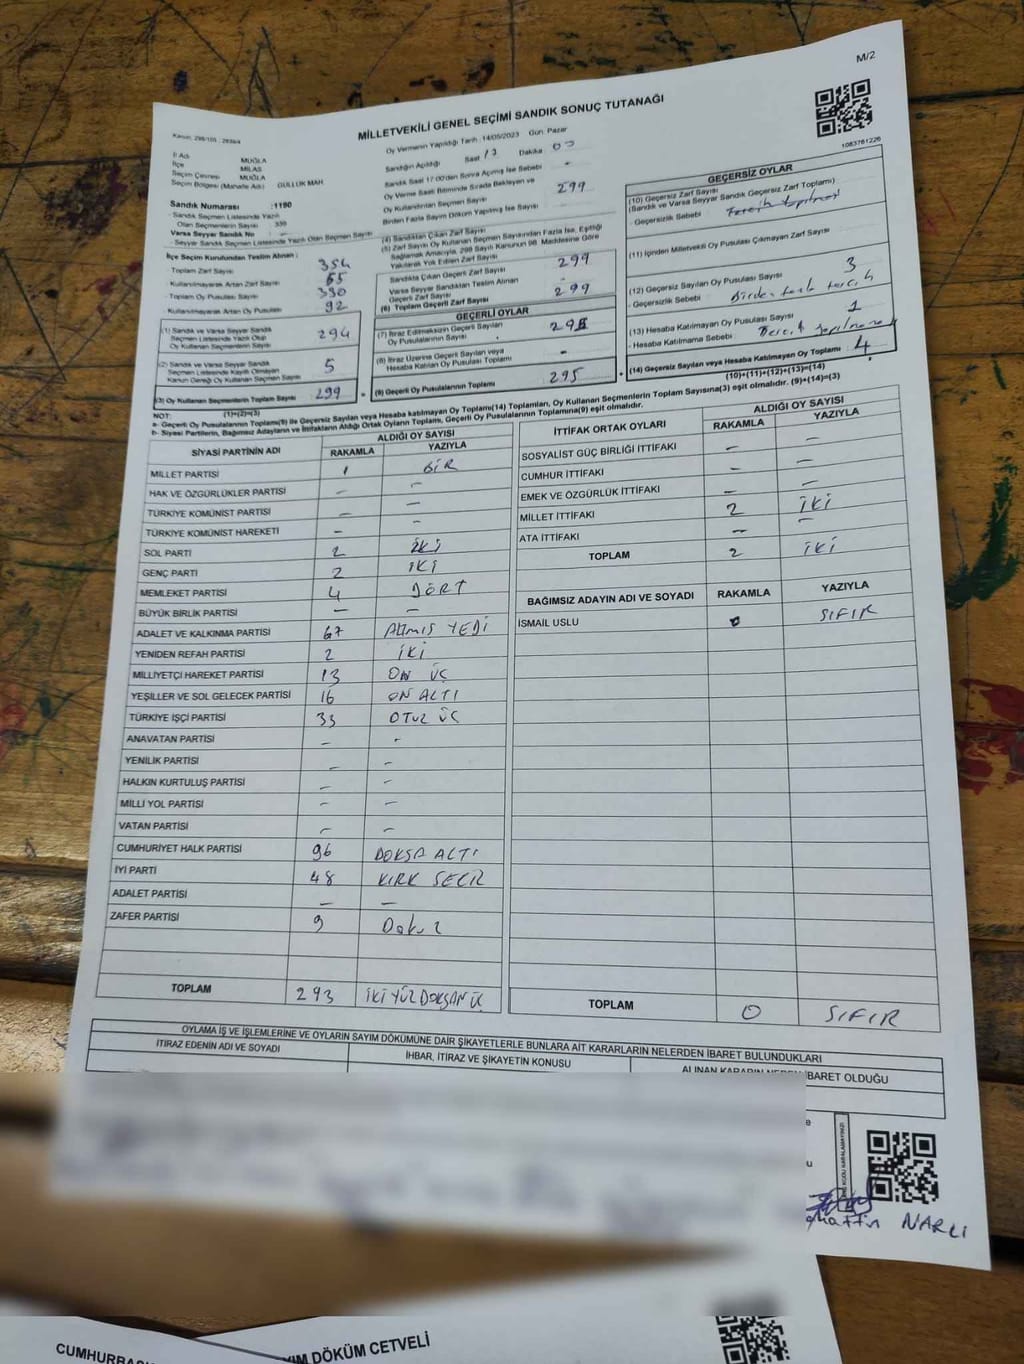 M/2
MİLLETVEKİLİ GENEL SEÇİMİ SANDIK SONUÇ TUTANAĞI
1083761226
Kanun: 298/105 ; 2839/4
İl Adı MUĞLA
İlçe MİLAS
Seçim Çevresi MUĞLA
Seçim Bölgesi (Mahalle Adı) GÜLLÜK MAH.
Sandık Numarası :1190
- Sandık Seçmen Listesinde Yazılı
Olan Seçmenlerin Sayısı 339
Varsa Seyyar Sandık No
- Seyyar Sandık Seçmen Listesinde Yazılı Olan Seçmen Sayısı
İlçe Seçim Kurulundan Teslim Alınan :
- Toplam Zarf Sayısı 354
- Kullanılmayarak Artan Zarf Sayısı 55
- Toplam Oy Pusulası Sayısı 390
- Kullanılmayarak Artan Oy Pusulası 92
(1) Sandık ve Varsa Seyyar Sandık
Seçmen Listesinde Yazılı Olup
Oy Kullanan Seçmenlerin Sayısı 294
(2) Sandık ve Varsa Seyyar Sandık
Seçmen Listesinde Kayıtlı Olmayan
Kanun Gereği Oy Kullanan Seçmen Sayısı 5
(3) Oy Kullanan Seçmenlerin Toplam Sayısı 299
(1)+(2)=(3)
Oy Vermenin Yapıldığı Tarih : 14/05/2023 Gün: Pazar
Sandığın Açıldığı Saat 17 Dakika 00
Sandık Saat 17:00'den Sonra Açılmış İse Sebebi -
Oy Verme Saati Bitiminde Sırada Bekleyen ve
Oy Kullandırılan Seçmen Sayısı 299
Birden Fazla Sayım Döküm Yapılmış İse Sayısı
(4) Sandıktan Çıkan Zarf Sayısı
(5) Zarf Sayısı Oy Kullanan Seçmen Sayısından Fazla İse, Eşitliği
Sağlamak Amacıyla, 298 Sayılı Kanunun 98. Maddesine Göre
Yakılarak Yok Edilen Zarf Sayısı
Sandıkta Çıkan Geçerli Zarf Sayısı 299
Varsa Seyyar Sandıktan Teslim Alınan
Geçerli Zarf Sayısı -
(6) Toplam Geçerli Zarf Sayısı 299
GEÇERLİ OYLAR
(7) İtiraz Edilmeksizin Geçerli Sayılan
Oy Pusulalarının Sayısı 295
(8) İtiraz Üzerine Geçerli Sayılan veya
Hesaba Katılan Oy Pusulası Toplamı -
(9) Geçerli Oy Pusulalarının Toplamı 295
GEÇERSİZ OYLAR
(10) Geçersiz Zarf Sayısı
(Sandık ve Varsa Seyyar Sandık Geçersiz Zarf Toplamı)
- Geçersizlik Sebebi
(11) İçinden Milletvekili Oy Pusulası Çıkmayan Zarf Sayısı
(12) Geçersiz Sayılan Oy Pusulası Sayısı 3
- Geçersizlik Sebebi Birden fazla tercih
(13) Hesaba Katılmayan Oy Pusulası Sayısı 1
- Hesaba Katılmama Sebebi
(14) Geçersiz Sayılan veya Hesaba Katılmayan Oy Toplamı 4
(10)+(11)+(12)+(13)=(14)
NOT:
a- Geçerli Oy Pusulalarının Toplamı(9) ile Geçersiz Sayılan veya Hesaba katılmayan Oy Toplamı(14) Toplamları, Oy Kullanan Seçmenlerin Toplam Sayısına(3) eşit olmalıdır. (9)+(14)=(3)
b- Siyasi Partilerin, Bağımsız Adayların ve İttifakların Aldığı Ortak Oyların Toplamı, Geçerli Oy Pusulalarının Toplamına(9) eşit olmalıdır.
SİYASİ PARTİNİN ADI ALDIĞI OY SAYISI
RAKAMLA YAZIYLA
MİLLET PARTİSİ 1 BİR
HAK VE ÖZGÜRLÜKLER PARTİSİ - -
TÜRKİYE KOMÜNİST PARTİSİ - -
TÜRKİYE KOMÜNİST HAREKETİ - -
SOL PARTİ 2 İKİ
GENÇ PARTİ 2 İKİ
MEMLEKET PARTİSİ 4 DÖRT
BÜYÜK BİRLİK PARTİSİ - -
ADALET VE KALKINMA PARTİSİ 67 ALTMIŞ YEDİ
YENİDEN REFAH PARTİSİ 2 İKİ
MİLLİYETÇİ HAREKET PARTİSİ 13 ON ÜÇ
YEŞİLLER VE SOL GELECEK PARTİSİ 16 ON ALTI
TÜRKİYE İŞÇİ PARTİSİ 33 OTUZ ÜÇ
ANAVATAN PARTİSİ - -
YENİLİK PARTİSİ - -
HALKIN KURTULUŞ PARTİSİ - -
MİLLİ YOL PARTİSİ - -
VATAN PARTİSİ - -
CUMHURİYET HALK PARTİSİ 96 DOKSA ALTI
İYİ PARTİ 48 KIRK SECİZ
ADALET PARTİSİ - -
ZAFER PARTİSİ 9 Dokuz
TOPLAM 293 İKİ YÜZ DOKSAN ÜÇ
İTTİFAK ORTAK OYLARI ALDIĞI OY SAYISI
RAKAMLA YAZIYLA
SOSYALİST GÜÇ BİRLİĞİ İTTİFAKI - -
CUMHUR İTTİFAKI - -
EMEK VE ÖZGÜRLÜK İTTİFAKI - -
MİLLET İTTİFAKI 2 İKİ
ATA İTTİFAKI - -
TOPLAM 2 İKİ
BAĞIMSIZ ADAYIN ADI VE SOYADI RAKAMLA YAZIYLA
İSMAİL USLU 0 SIFIR
TOPLAM 0 SIFIR
OYLAMA İŞ VE İŞLEMLERİNE VE OYLARIN SAYIM DÖKÜMÜNE DAİR ŞİKAYETLERLE BUNLARA AİT KARARLARIN NELERDEN İBARET BULUNDUKLARI
İTİRAZ EDENİN ADI VE SOYADI İHBAR, İTİRAZ VE ŞİKAYETİN KONUSU ALINAN KARARIN NEDEN İBARET OLDUĞU
NARLI
SAYIM DÖKÜM CETVELİ